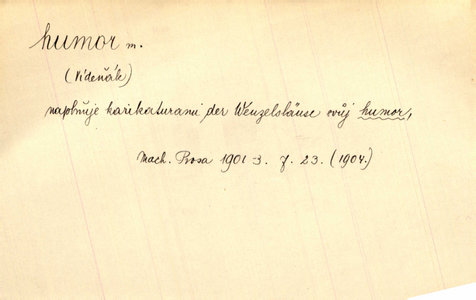 humor m.
(Vídeňák)
naplňuje karikaturami der Wenzelsläuse svůj humor,
Mach. Prosa 1901-3. f. 23. (1904.)